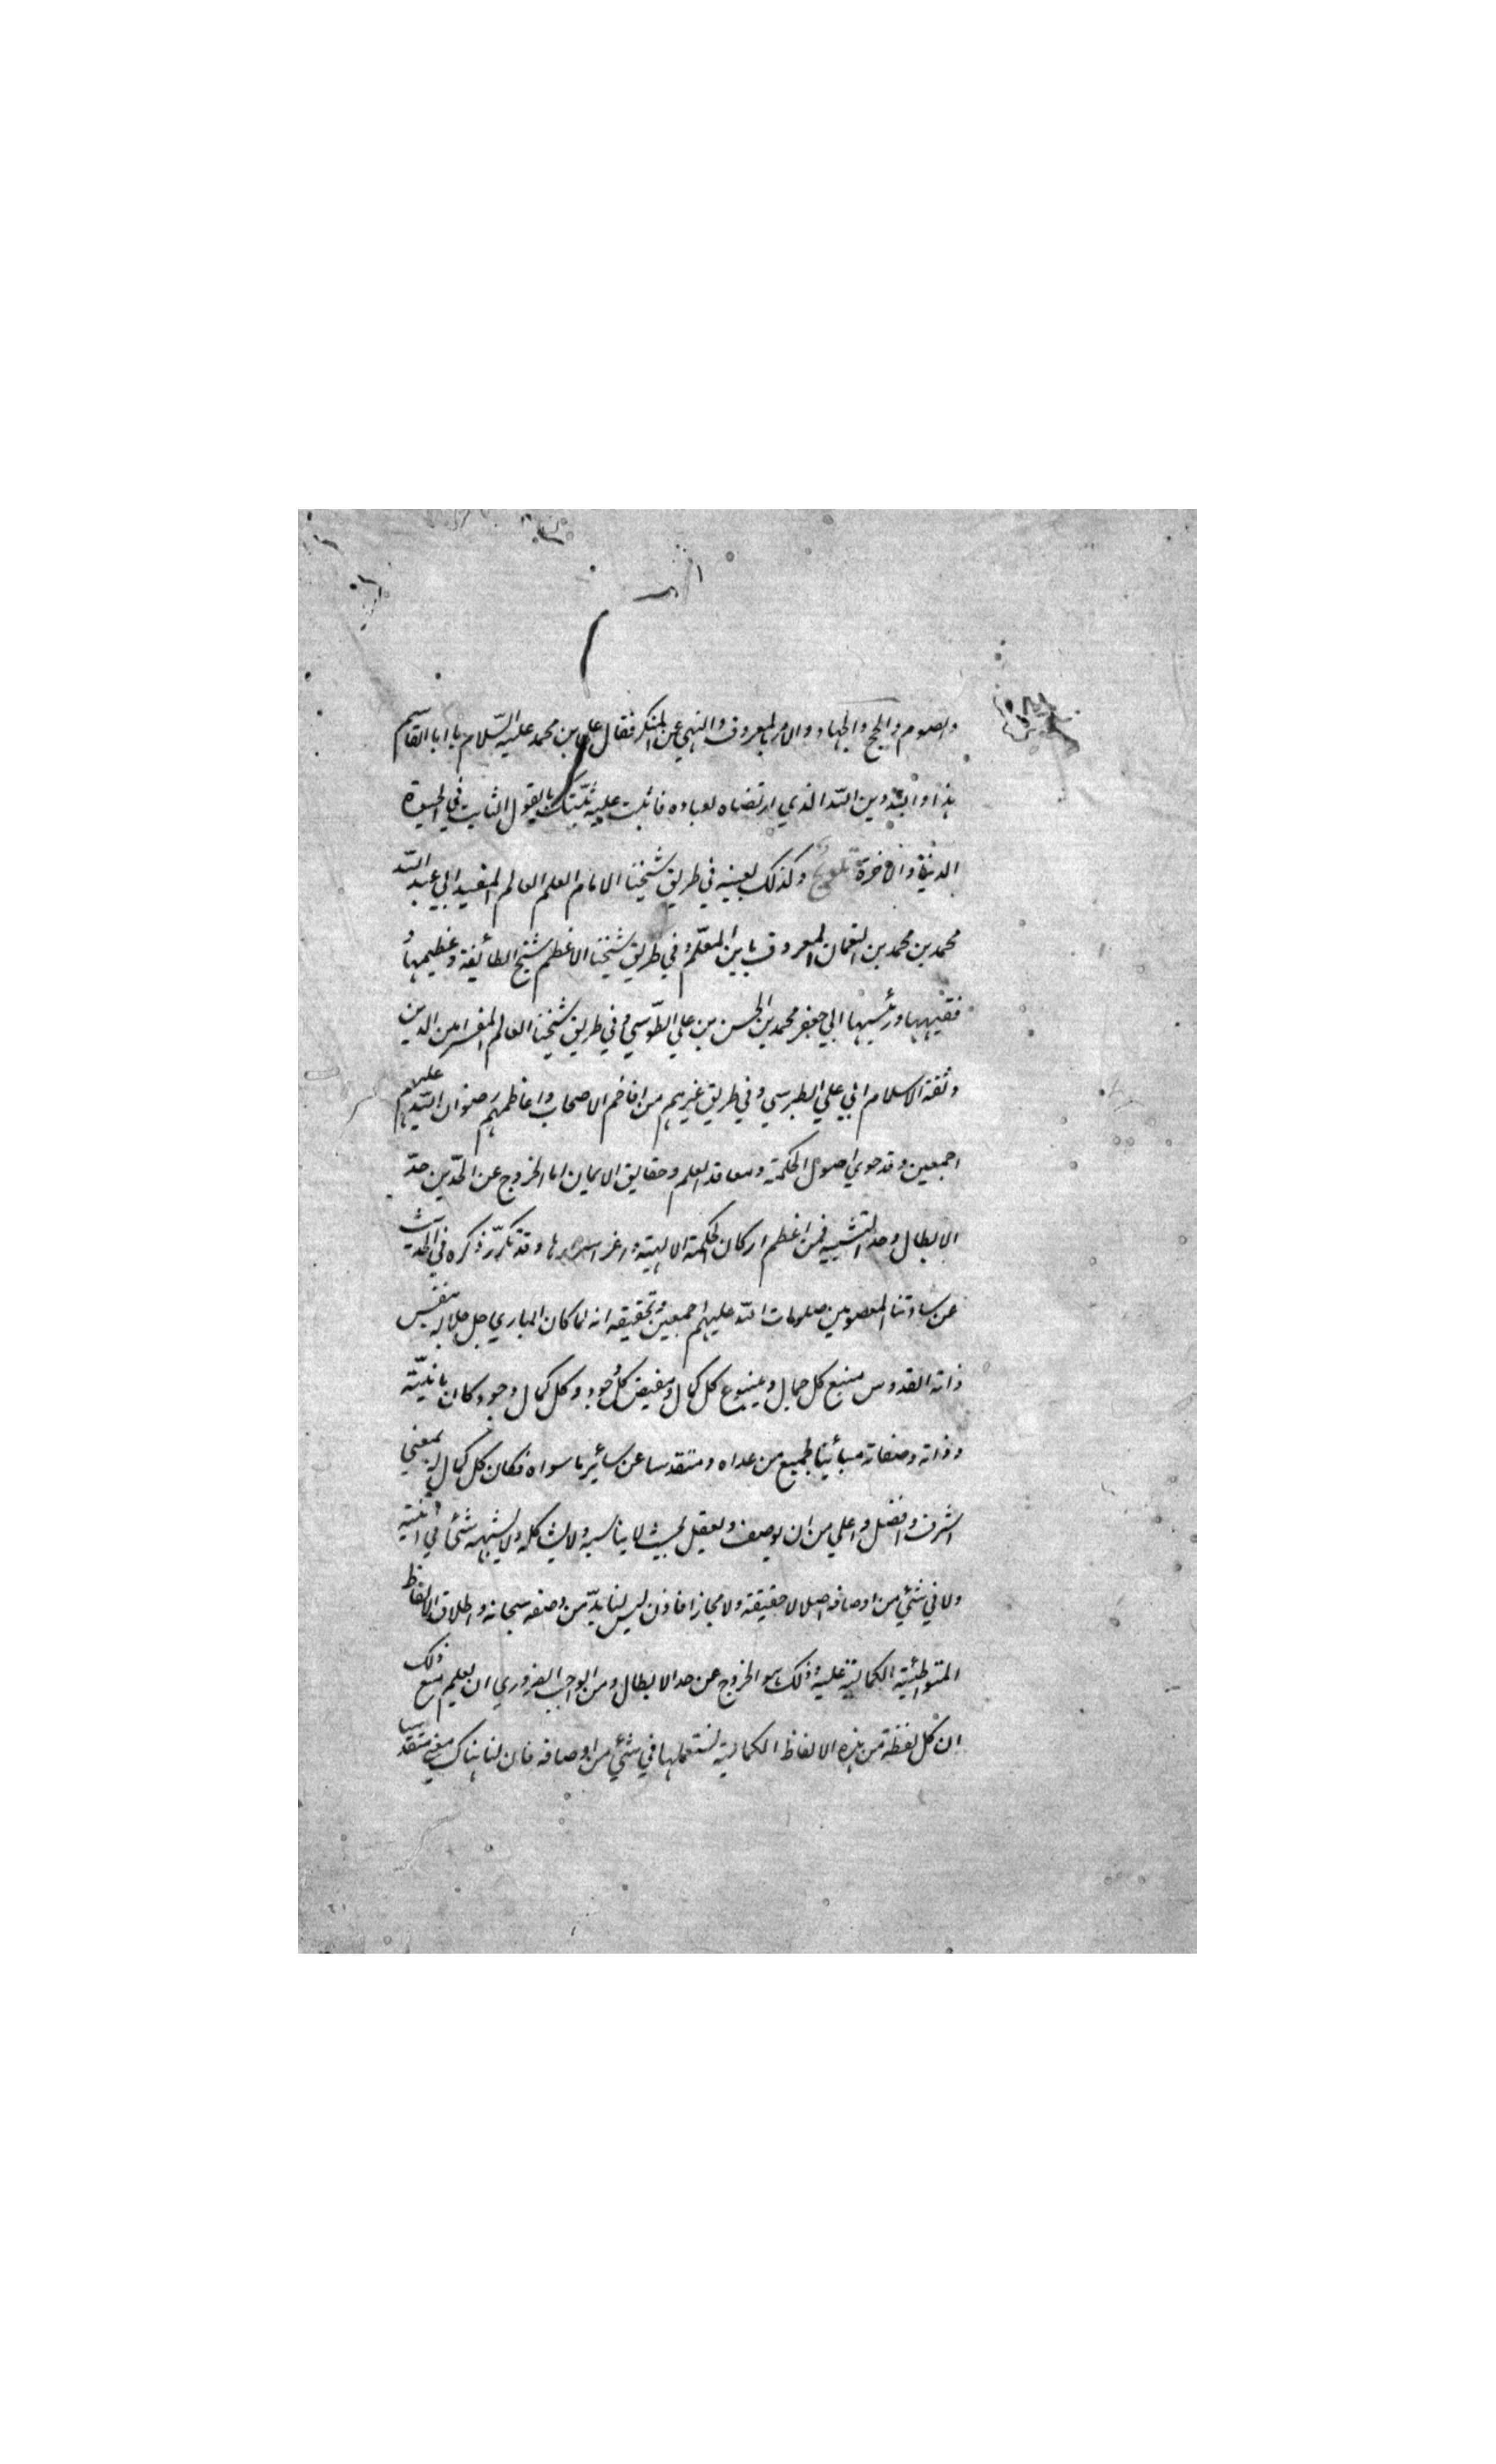 والصوم والحج والجهاد والامر بالمعروف والنهي عن المنكر فقال علي بن محمد عليه السّلام يا ابا القاسم
هذا والله دين الله الذي ارتضاه لعباده فاثبت عليه ثبّتك بالقول الثابت في الحيوة
الدنيا والاخرة تلويح وكذلك بعينه في طريق شيخنا الامام العلم العالم المفيد ابي عبد الله
محمد بن محمد بن النعمان المعروف بابن المعلّم وفي طريق شيخنا الاعظم شيخ الطائفة وعظيمها و
فقيهها ورئيسها ابي جعفر محمد بن الحسن بن علي الطّوسي وفي طريق شيخنا العالم المفسر امين الدين
وثقة الاسلام ابي علي الطبرسي وفي طريق غيرهم من افاخم الاصحاب واعاظمهم رضوان الله عليهم
اجمعين وقد حوي اصول الحكمة ومعاقد العلم وحقايق الايمان اما الخروج عن الحدّين حدّ
الابطال وحد التشبيه فمن اعظم اركان الحكمة الالهية واغر اسرارها وقد تكرّر ذكره في الحديث
عن ساداتنا المعصومين صلوات الله عليهم اجمعين وتحقيقه انه لما كان الباري جل جلاله بنفس
ذاته القدوس منبع كل جمال وينبوع كل كمال ومفيض كل وجود وكل كمال وجود كان بانيّته
وذاته وصفاته مبائنا لجميع من عداه ومتقدسا عن سائر ما سواه فكان كل كمال له بمعني
اشرف وافضل واعلي من ان يوصف ويعقل بحيث لا يناسبه ولا يشاكله ولا يشبهه شئ في انيته
ولا في شئ من اوصافه اصلا لا حقيقة ولا مجازا فاذن ليس لنا بدّ من وصفه سبحانه واطلاق الالفاظ
المتواطئية الكمالية عليه وذلك هو الخروج عن حد الابطال ومن الواجب الضروري ان يعلم مع ذلك
ان كل لفظة من هذه الالفاظ الكمالية نستعملها في شئ من اوصافه فان لنا هناك معني متقدسا